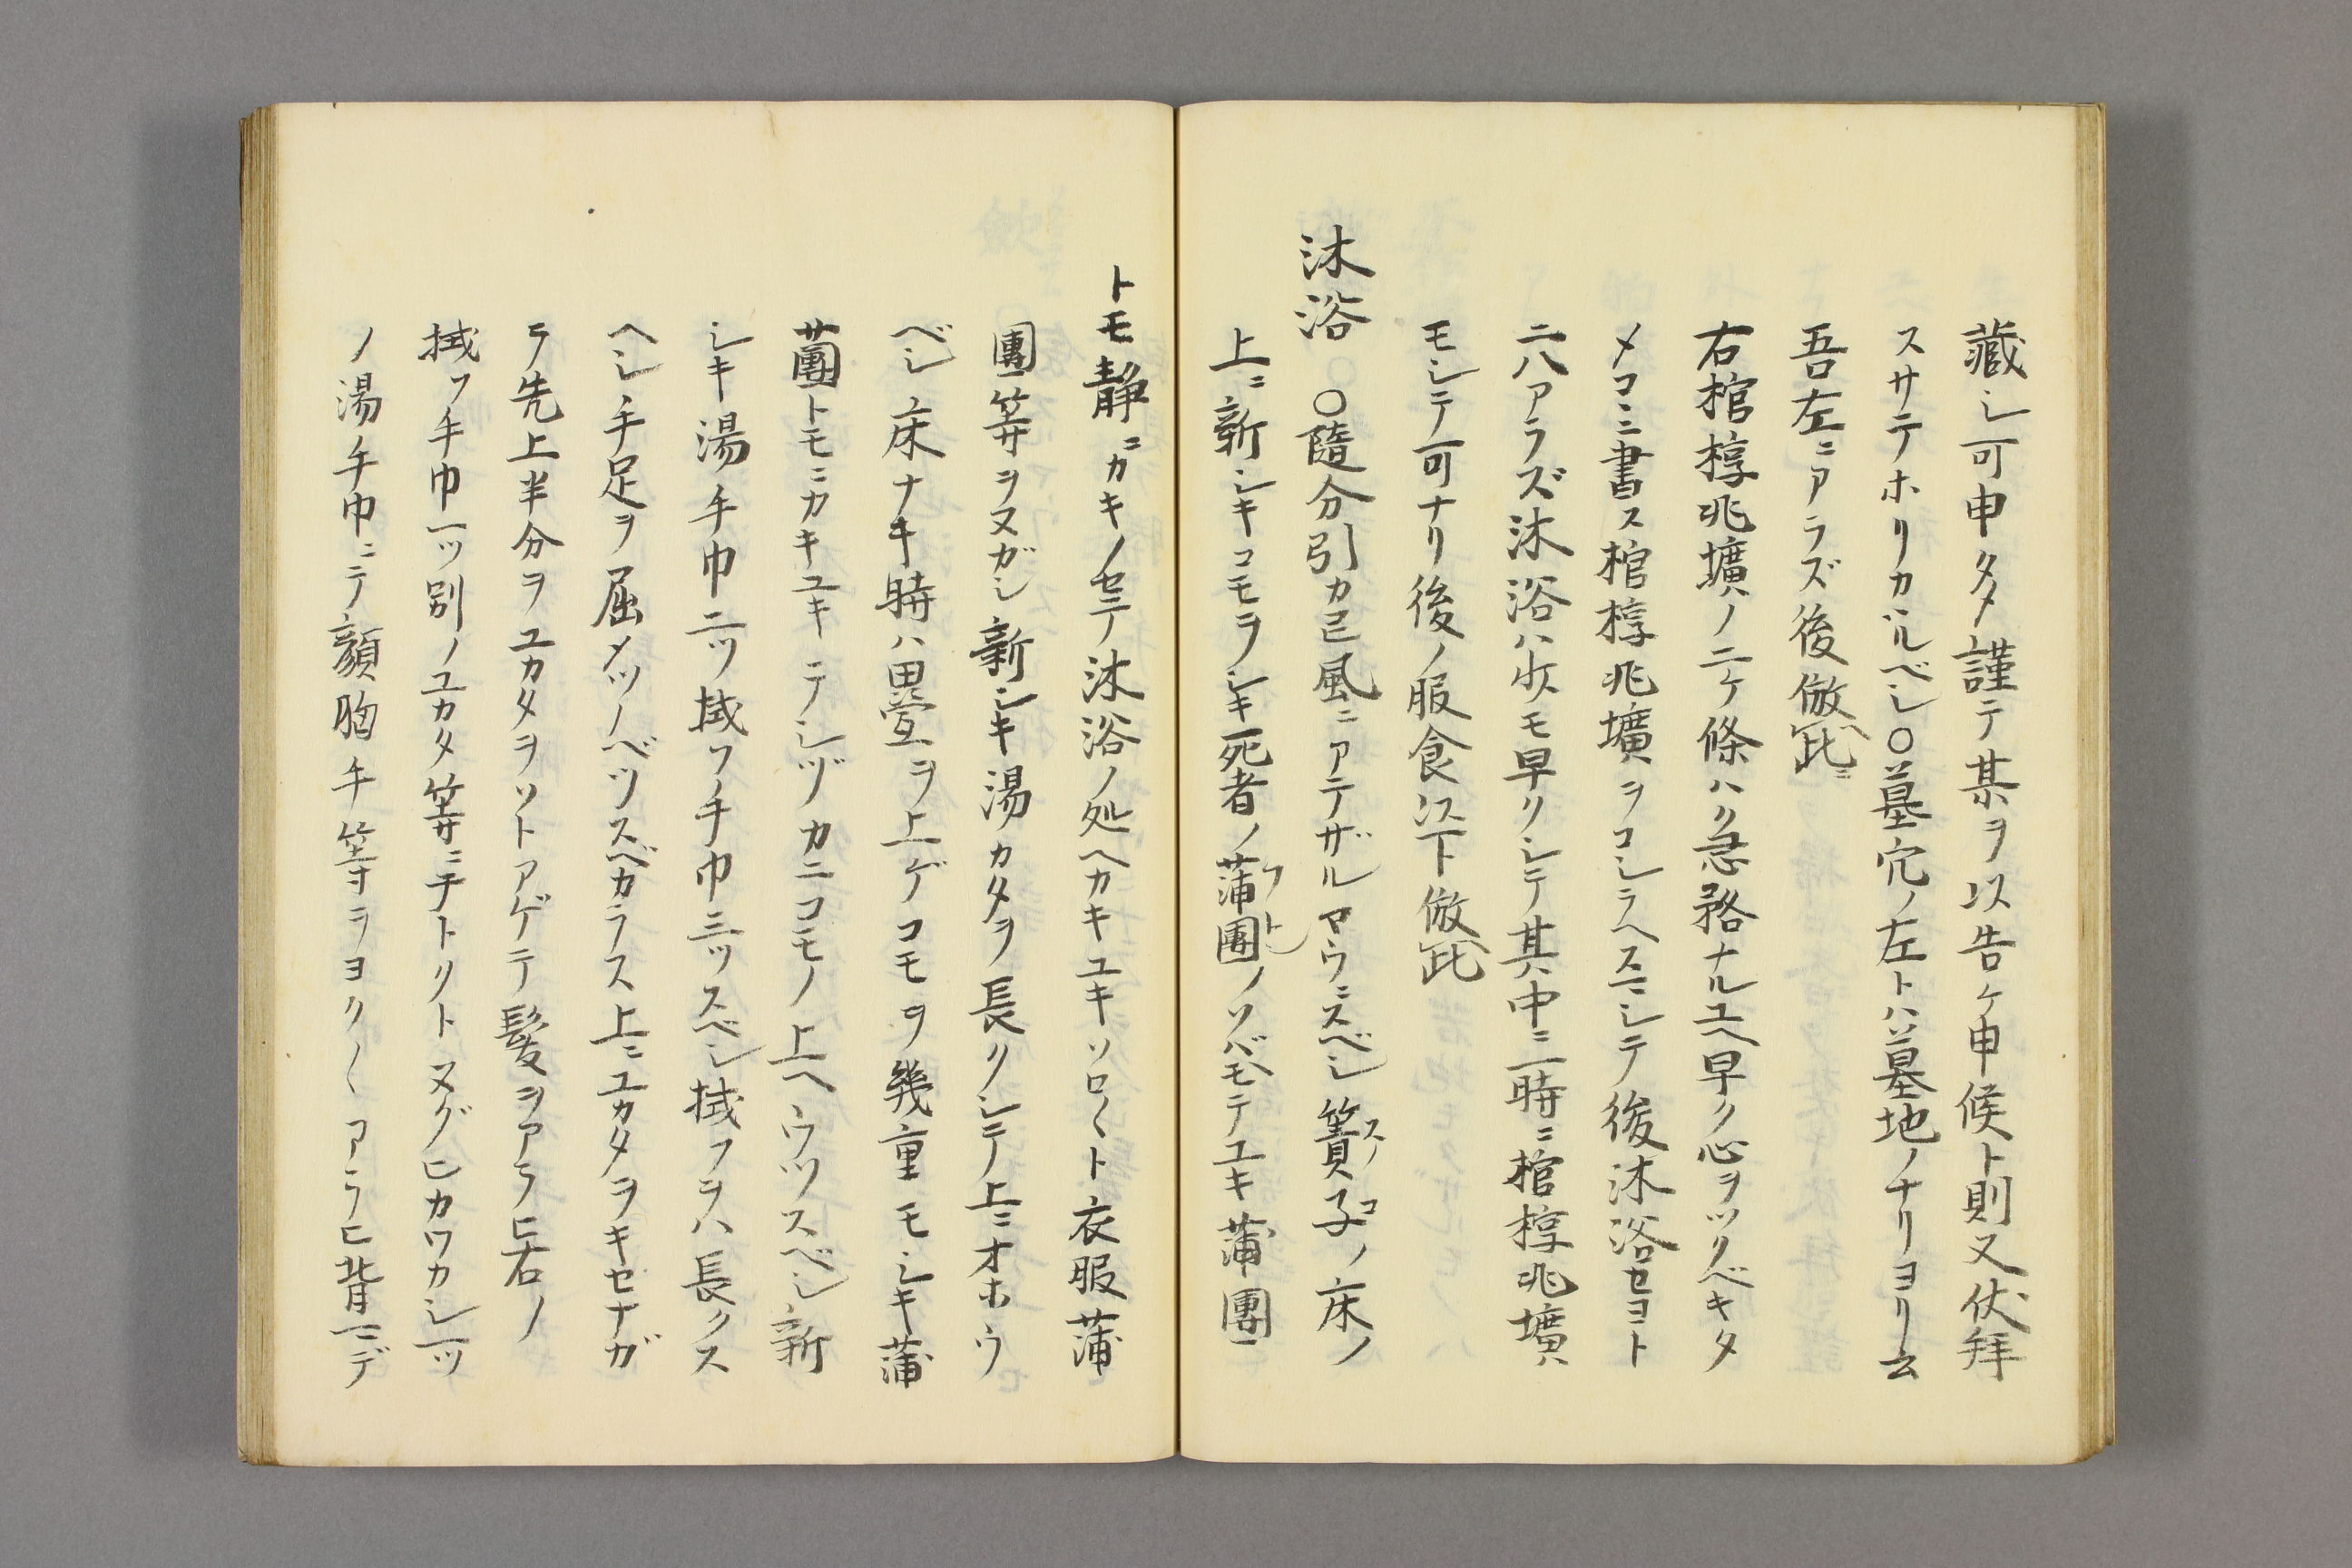 藏シ可申タメ謹テ某ヲ以告ケ申候ト則又伏拜
スサテホリカヽルベシ○墓穴ノ左トハ墓地ノナリヨリ云
吾左ニアラズ後倣此ニ
右棺椁兆壙ノ二ケ條ハク急務ナルユヘ早ク心ヲツクベキタ
メコヽニ書ス棺椁兆壙ヲコシラヘスニシテ後沐浴セヨト
ニハアラズ沐浴ハ少モ早クシテ其中ニ一時ニ棺椁兆壙
モシテ可ナリ後ノ服食以下倣此
沐浴 ○隨分引カコヒ風ニアテザルヤウニスベシ簀子ノ床ノ
上ニ新シキコモヲシキ死者ノ蒲團ノソバヘモテユキ蒲團
トモ静ニカキノセテ沐浴ノ処ヘカキユキソロ〱ト衣服蒲
團等ヲヌガシ新シキ湯カタヲ長クシテ上ニオホウ
ベシ床ナキ時ハ畳ヲ上ゲコモヲ幾重モシキ蒲
團トモニカキユキテシヅカニコモノ上ヘウツスベシ新
シキ湯手巾二ツ拭フ手巾三ツスベシ拭フヲハ長クス
ヘシ手足ヲ屈メツノベツスベカラス上ニユカタヲキセナガ
ラ先上半分ヲユカタヲソトアゲテ髮ヲアラヒ右ノ
拭フ手巾一ツ別ノユカタ等ニテトクトヌグヒカワカシ一ツ
ノ湯手巾ニテ顔胸手等ヲヨク〱アラヒ背ニデ